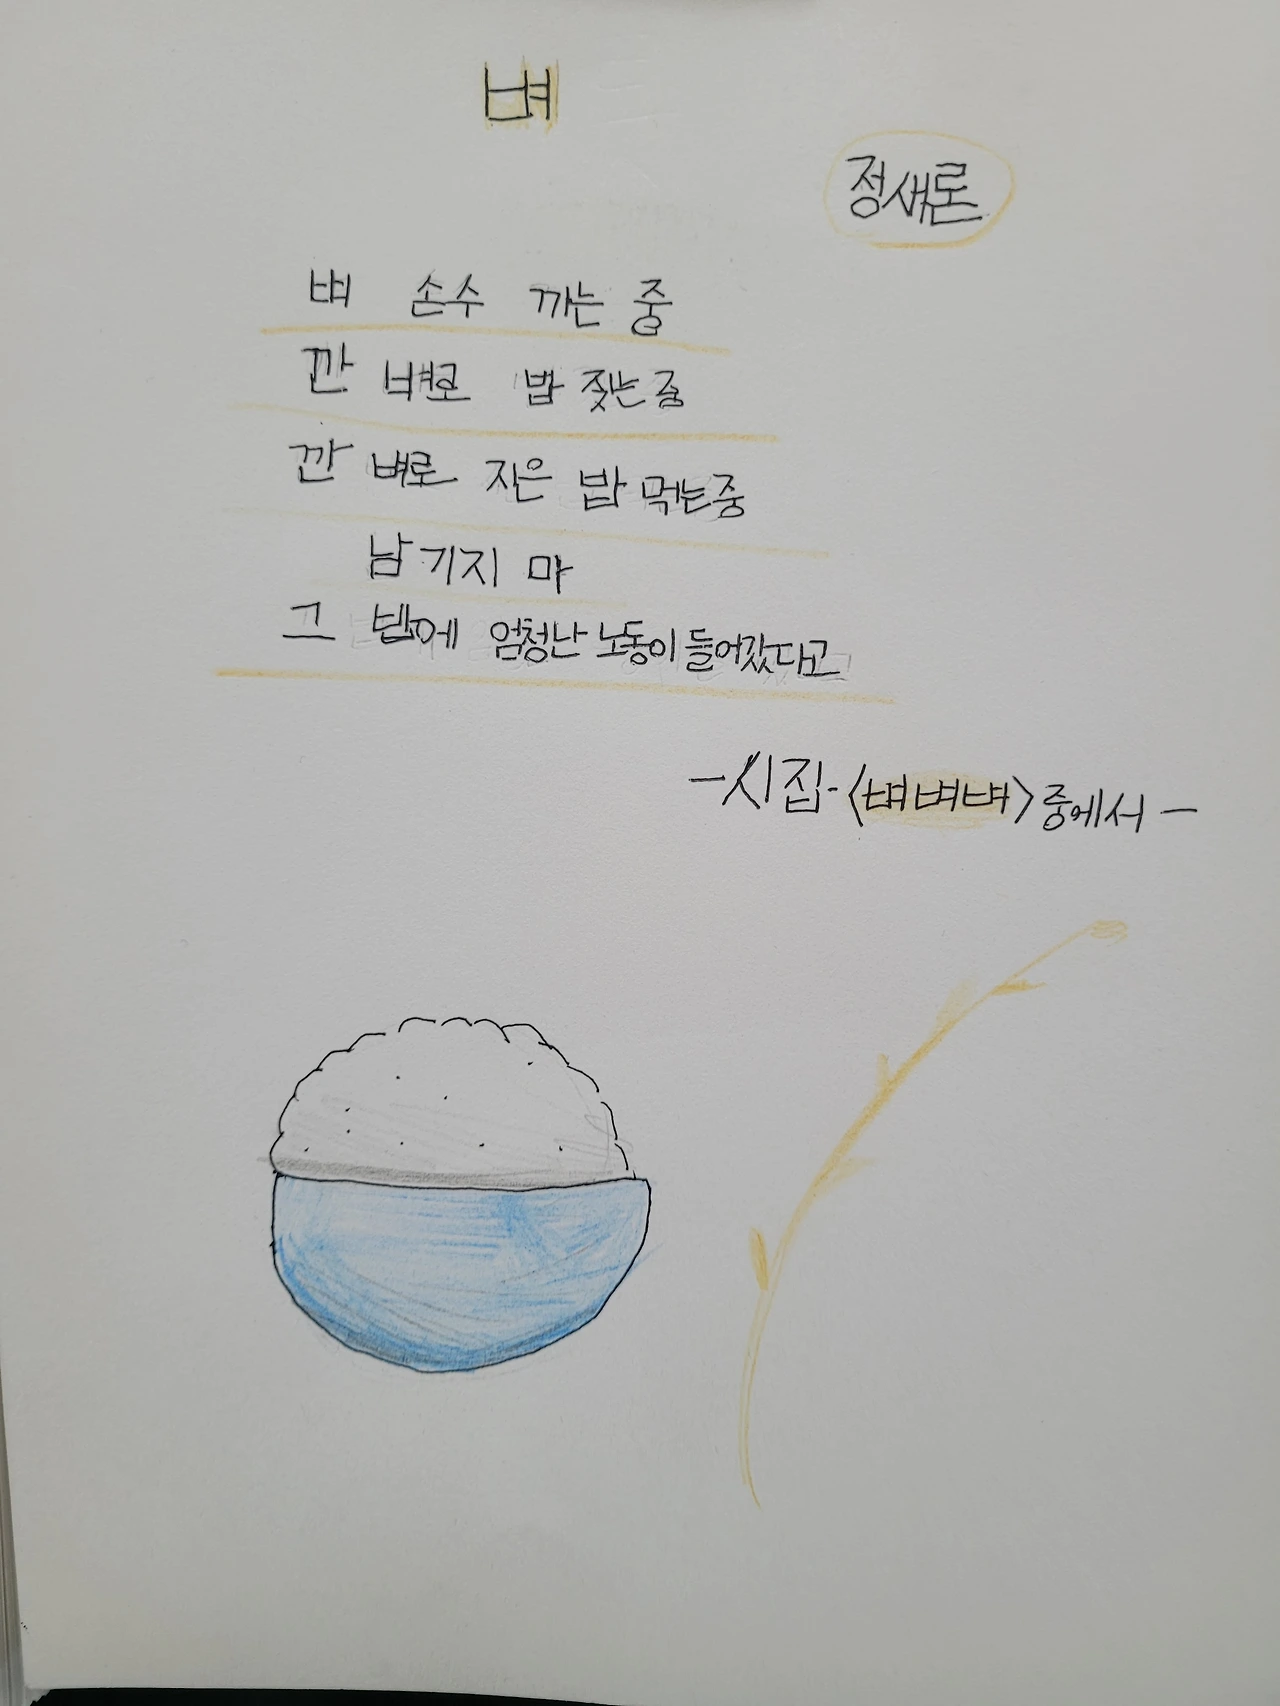 벼
정새론
벼 손수 까는 중
깐 벼로 밥 짓는 중
깐 벼로 지은 밥 먹는중
남기지 마
그 밥에 엄청난 노동이 들어갔다고
-시집-<벼벼벼>중에서-